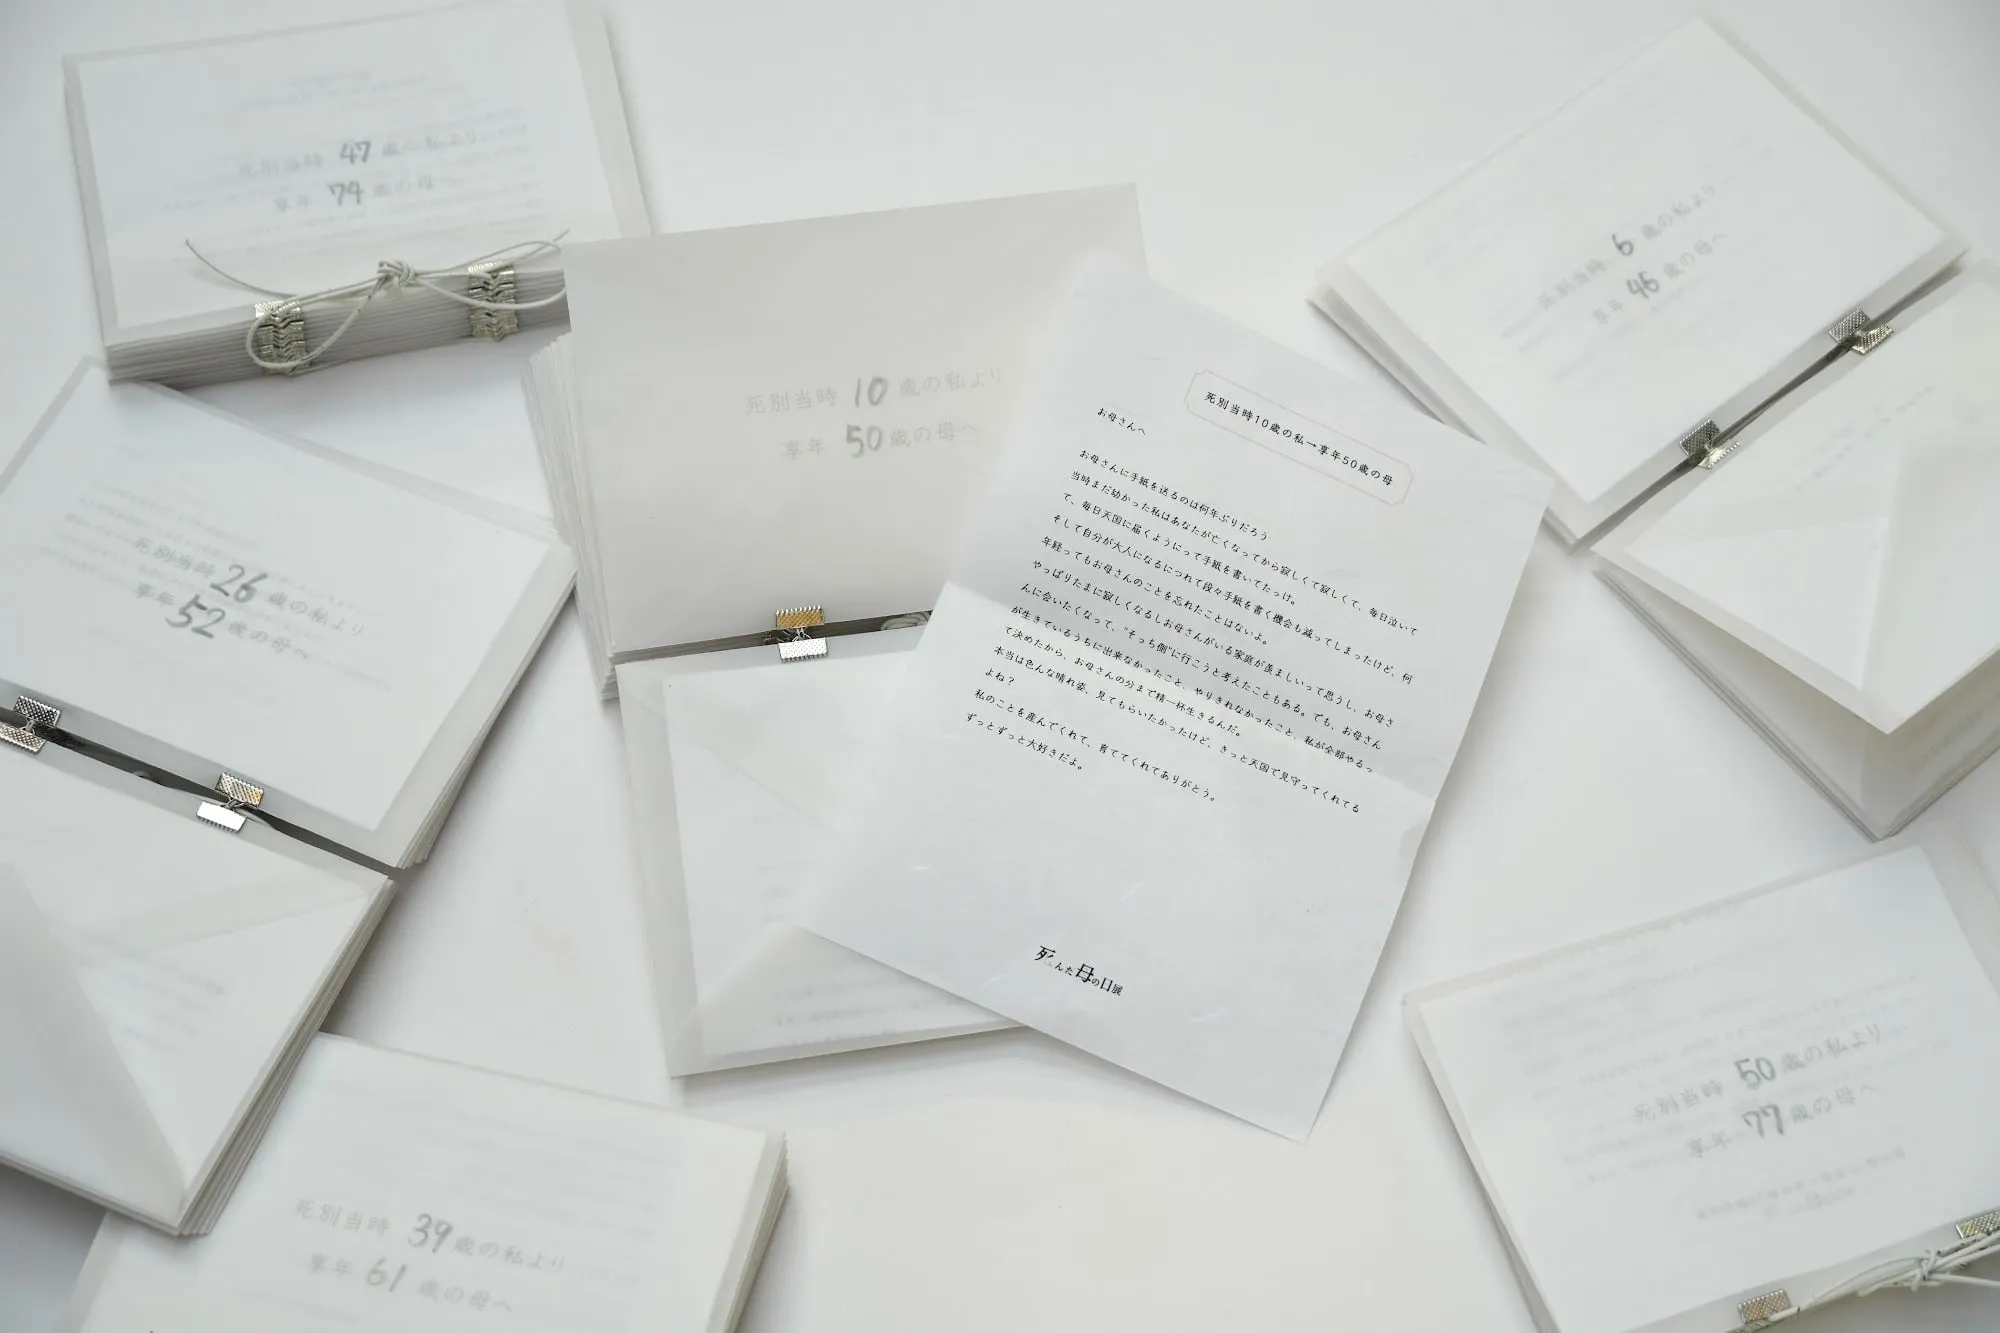 死別当時 47 歳の私より
享年 74 歳の母へ
死別当時 6 歳の私より
享年 46 歳の母へ
死別当時 10 歳の私より
享年 50 歳の母へ
死別当時10歳の私→享年50歳の母
お母さんへ
お母さんに手紙を送るのは何年ぶりだろう
当時まだ幼かった私はあなたが亡くなってから寂しくて寂しくて、毎日泣いて
て、毎日天国に届くようにって手紙を書いてたっけ。
そして自分が大人になるにつれて段々手紙を書く機会も減ってしまったけど、何
年経ってもお母さんのことを忘れたことはないよ。
やっぱりたまに寂しくなるしお母さんがいる家庭が羨ましいって思うし、お母さ
んに会いたくなって、"そっち側"に行こうと考えたこともある。でも、お母さん
が生きているうちに出来なかったこと、やりきれなかったこと、私が全部やるっ
て決めたから、お母さんの分まで精一杯生きるんだ。
本当は色んな晴れ姿、見てもらいたかったけど、きっと天国で見守ってくれてる
よね？
私のことを産んでくれて、育ててくれてありがとう。
ずっとずっと大好きだよ。
死んだ母の日展
死別当時 26 歳の私より
享年 52 歳の母へ
死別当時 39 歳の私より
享年 61 歳の母へ
死別当時 50 歳の私より
享年 77 歳の母へ